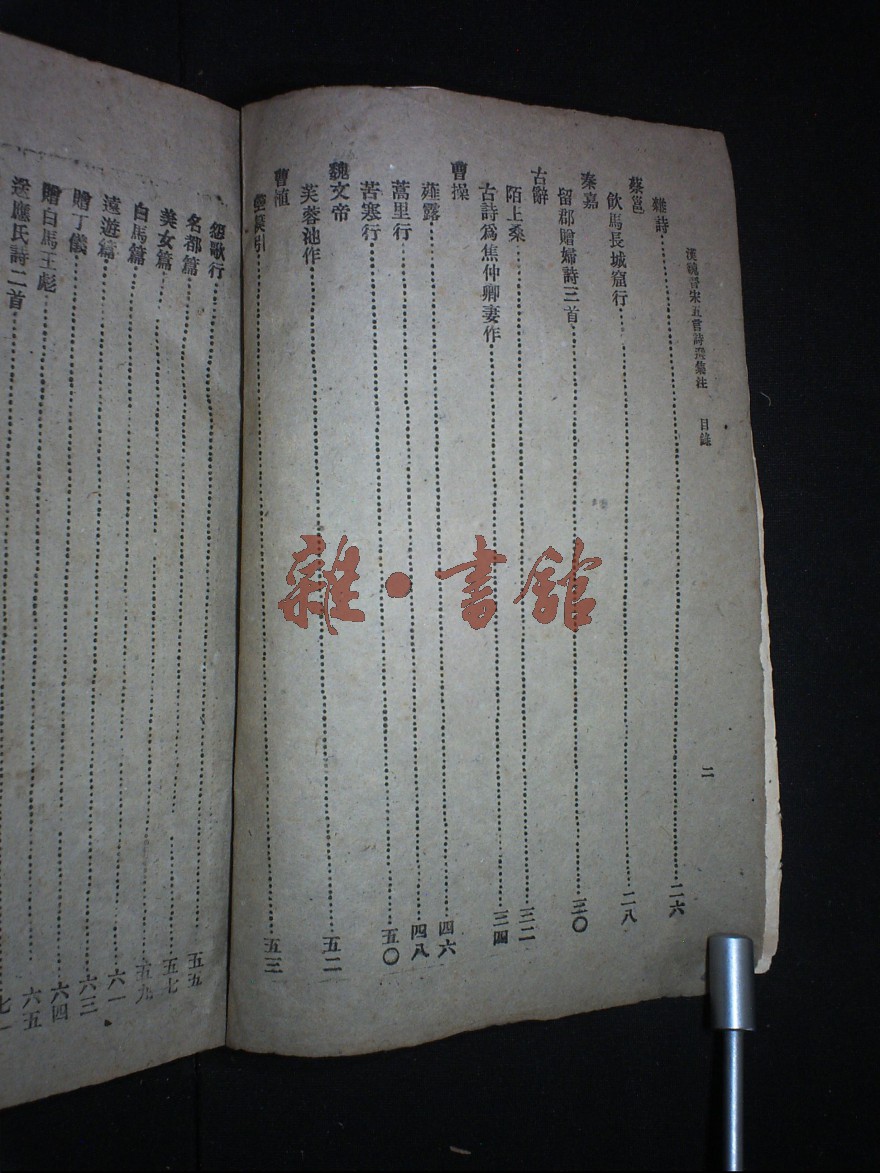 漢魏晉宋五言詩選集注 目錄 二
雜詩……二六
蔡邕
飲馬長城窟行……二八
秦嘉
留郡贈婦詩三首……三〇
古辭
陌上桑……三二
古詩爲焦仲卿妻作……三四
曹操
薤露……四六
蒿里行……四八
苦寒行……五〇
魏文帝
芙蓉池作……五二
曹植
箜篌引……五三
怨歌行……五五
名都篇……五七
美女篇……五九
白馬篇……六一
遠遊篇……六三
贈丁儀……六四
贈白馬王彪……六五
送應氏詩二首……七一
雜·書館